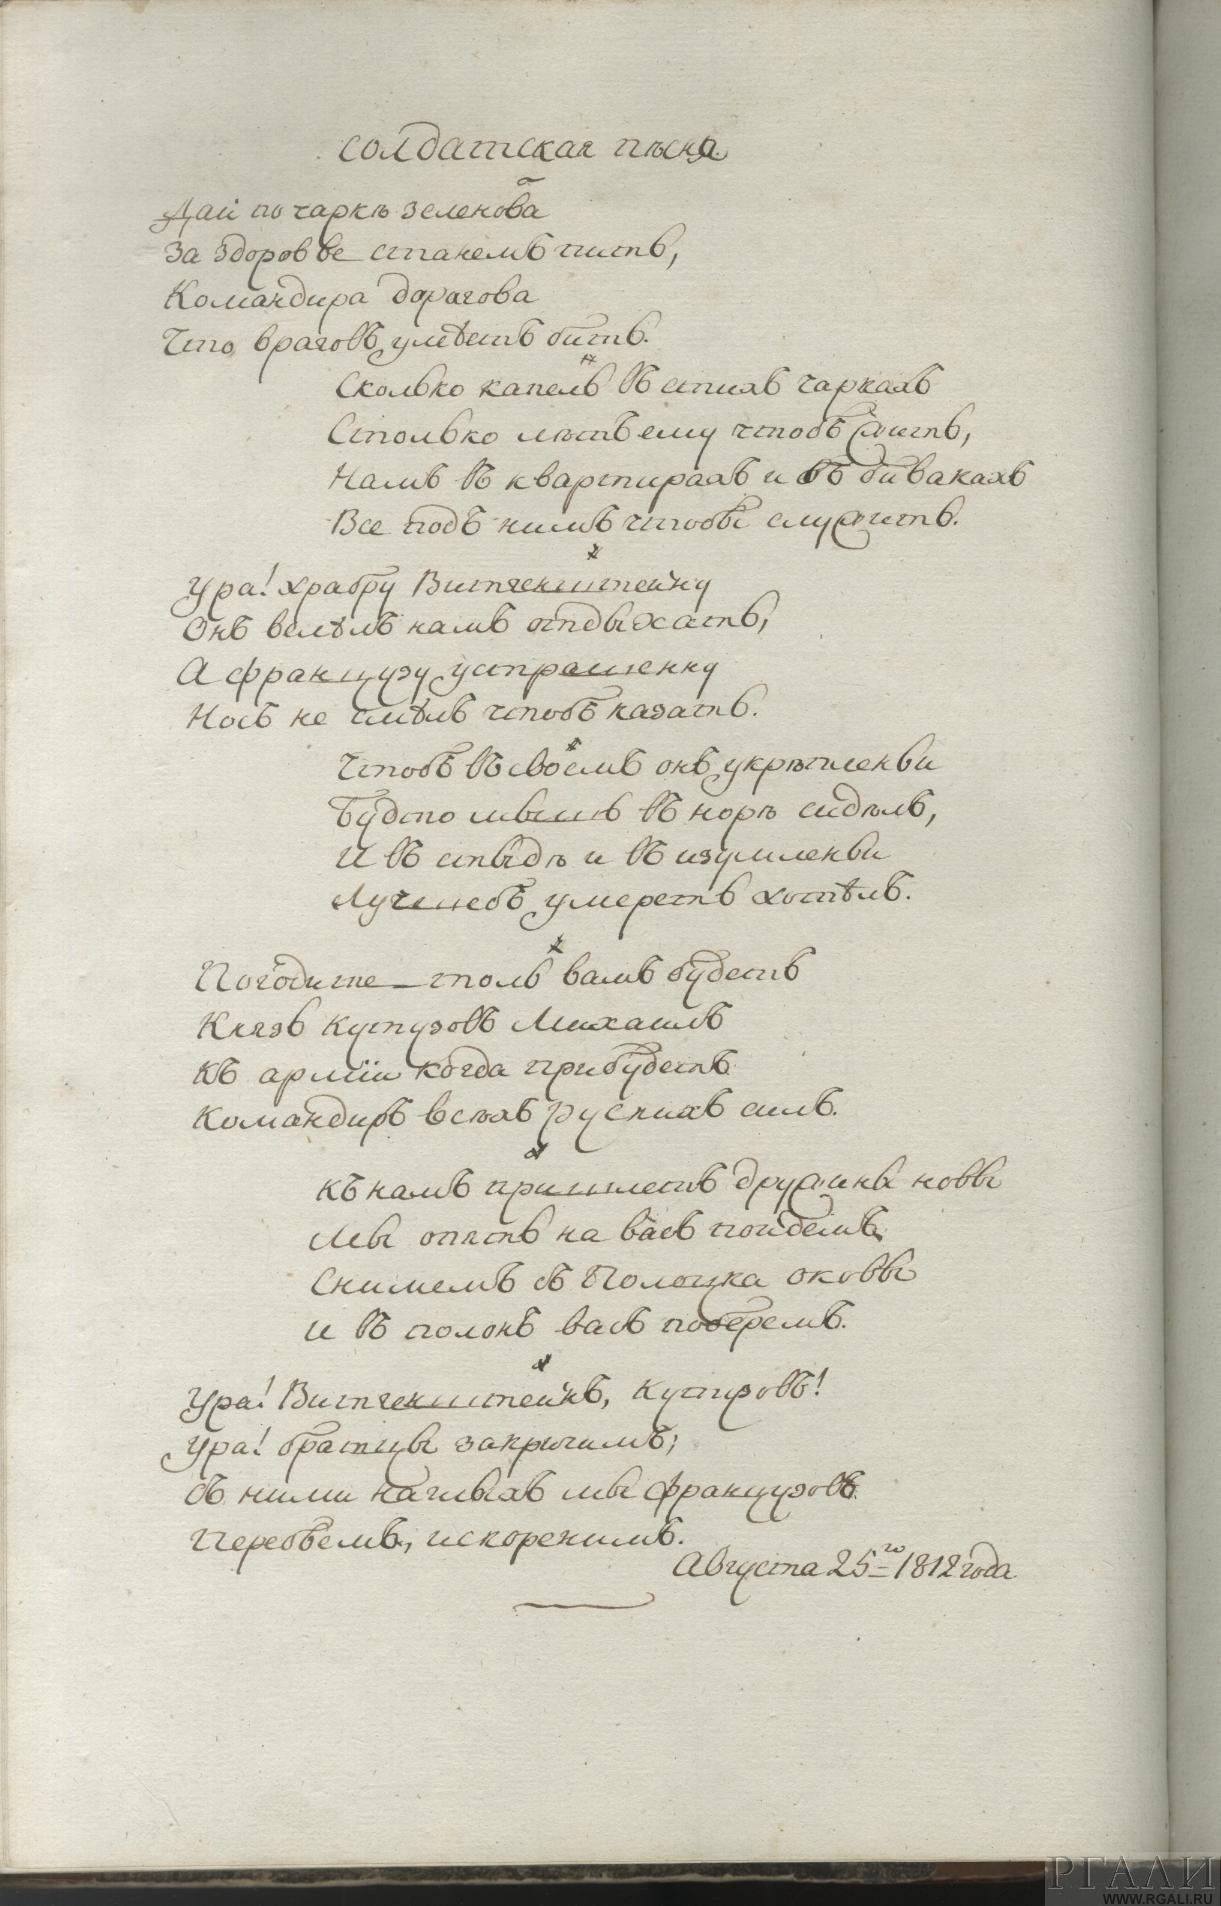 Солдатская пѣсня.
Дай по чаркѣ зеленова
За здоровье станемъ пить,
Командира дорагова
Что враговъ умѣетъ бить.
Сколько капель въ этихъ чаркахъ
Столько лѣтъ ему чтобъ жить,
Намъ въ квартирахъ и въ бивакахъ
Все подъ нимъ чтобы служить.
Ура! храбру Витгенштейну
Онъ велѣлъ намъ отдыхать,
А французу устрашенну
Носъ не смѣлъ чтобъ казать.
Чтобъ въ своемъ онъ укрѣпленьи
Будто мышь въ норѣ сидѣлъ,
И въ стыдѣ и въ изумленьи
Лучшебъ умереть хотѣлъ.
Погодите – толь вамъ будетъ
Князь Кутузовъ Михаилъ
Къ арміи когда прибудетъ
Командиръ всѣхъ рускихъ силъ.
Къ намъ пришлетъ дружины новы
Мы опять на васъ пойдемъ
Снимемъ съ Полоцка оковы
И въ полонъ васъ поберемъ.
Ура! Витгенштейнъ, Кутузовъ!
Ура! братцы закричимъ;
Съ ними наглыхъ мы французовъ
Перебьемъ, искоренимъ.
Августа 25го 1812 года.
РГАЛИ
WWW.RGALI.RU